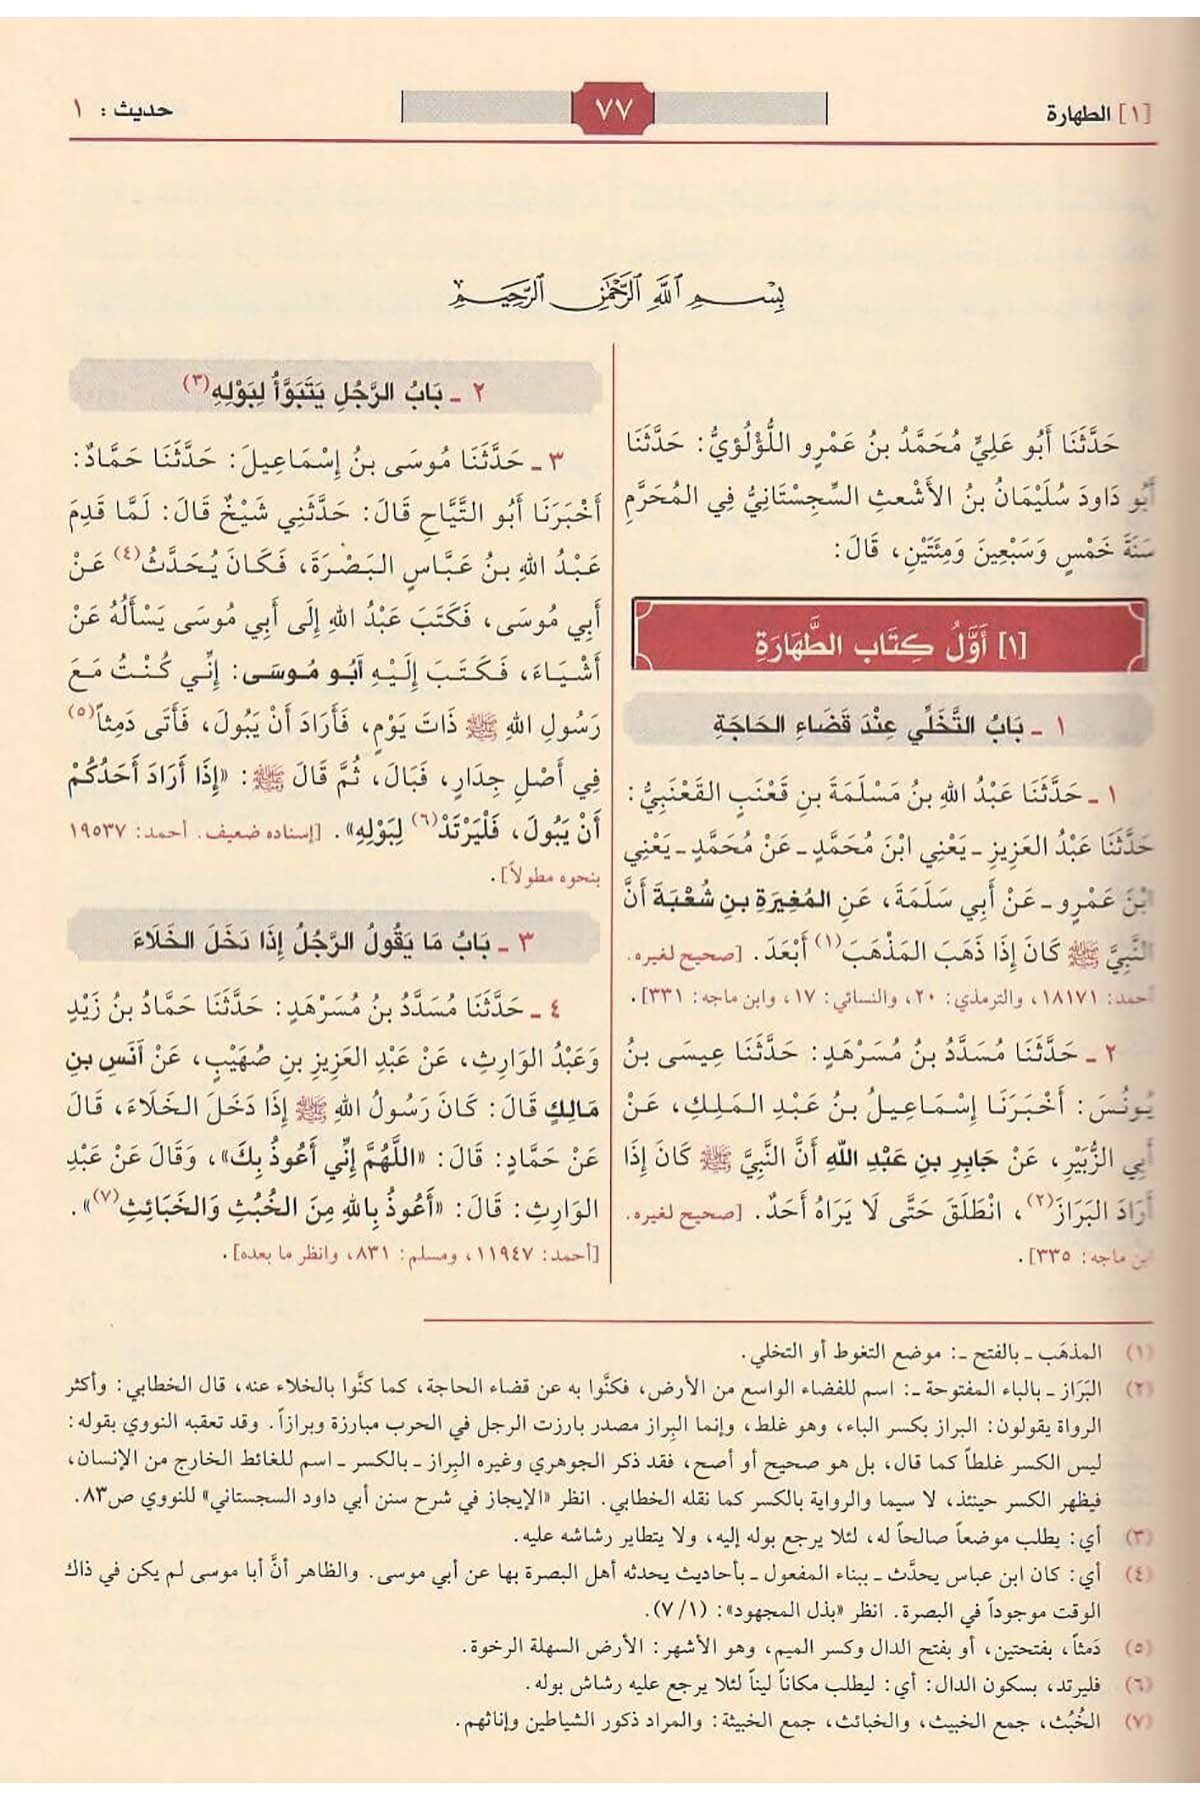 [١] الطهارة
٧٧
حديث : ١
بِسْمِ اللَّهِ الرَّحْمَٰنِ الرَّحِيمِ
حَدَّثَنَا أَبُو عَلِيٍّ مُحَمَّدُ بنُ عَمْرٍو اللُّؤْلُؤيُّ: حَدَّثَنَا
أَبُو دَاودَ سُلَيْمَانُ بنُ الأَشْعثِ السِّجِسْتَانِيُّ فِي المُحَرَّمِ
سَنَةَ خَمْسٍ وَسَبْعِينَ وَمِئَتَيْنِ، قَالَ:
[١] أَوَّلُ كِتَاب الطَّهَارَةِ
١ ـ بَابُ التَّخَلِّي عِنْدَ قَضَاءِ الحَاجَةِ
١ ـ حَدَّثَنَا عَبْدُ اللهِ بنُ مَسْلَمَةَ بنِ قَعْنَبٍ القَعْنَبِيُّ:
حَدَّثَنَا عَبْدُ العَزِيزِ ـ يَعْنِي ابْنَ مُحَمَّدٍ ـ عَنْ مُحَمَّدٍ ـ يَعْنِي
ابْنَ عَمْرٍو ـ عَنْ أَبِي سَلَمَةَ، عَنِ المُغِيرَةِ بنِ شُعْبَةَ أَنَّ
النَّبِيَّ ﷺ كَانَ إِذَا ذَهَبَ المَذْهَبَ(١) أَبْعَدَ. [صحيح لغيره.
أحمد: ١٨١٧١، والترمذي: ٢٠، والنسائي: ١٧، وابن ماجه: ٣٣١].
٢ ـ حَدَّثَنَا مُسَدَّدُ بنُ مُسَرْهَدٍ: حَدَّثَنَا عِيسَى بنُ
يُونُسَ: أَخْبَرَنَا إِسْمَاعِيلُ بنُ عَبْدِ المَلِكِ، عَنْ
أَبِي الزُّبَيْرِ، عَنْ جَابِرِ بنِ عَبْدِ اللَّهِ أَنَّ النَّبِيَّ ﷺ كَانَ إِذَا
أَرَادَ البَرَازَ(٢)، انْطَلَقَ حَتَّى لَا يَرَاهُ أَحَدٌ. [صحيح لغيره.
ابن ماجه: ٣٣٥].
٢ ـ بَابُ الرَّجُلِ يَتَبَوَّأُ لِبَوْلِهِ(٣)
٣ ـ حَدَّثَنَا مُوسَى بنُ إِسْمَاعِيلَ: حَدَّثَنَا حَمَّادٌ:
أَخْبَرَنَا أَبُو التَّيَّاحِ قَالَ: حَدَّثَنِي شَيْخٌ قَالَ: لَمَّا قَدِمَ
عَبْدُ اللهِ بنُ عَبَّاسٍ البَصْرَةَ، فَكَانَ يُحَدَّثُ(٤) عَنْ
أَبِي مُوسَى، فَكَتَبَ عَبْدُ اللهِ إِلَى أَبِي مُوسَى يَسْأَلُهُ عَنْ
أَشْيَاءَ، فَكَتَبَ إِلَيْهِ أَبُو مُوسَى: إِنِّي كُنْتُ مَعَ
رَسُولِ اللهِ ﷺ ذَاتَ يَوْمٍ، فَأَرَادَ أَنْ يَبُولَ، فَأَتَى دَمِثاً(٥)
فِي أَصْلِ جِدَارٍ، فَبَالَ، ثُمَّ قَالَ ﷺ: «إِذَا أَرَادَ أَحَدُكُمْ
أَنْ يَبُولَ، فَلْيَرْتَدْ(٦) لِبَوْلِهِ». [إسناده ضعيف. أحمد: ١٩٥٣٧
بنحوه مطولاً].
٣ ـ بَابُ مَا يَقُولُ الرَّجُلُ إِذَا دَخَلَ الخَلَاءَ
٤ ـ حَدَّثَنَا مُسَدَّدُ بنُ مُسَرْهَدٍ: حَدَّثَنَا حَمَّادُ بنُ زَيْدٍ
وَعَبْدُ الوَارِثِ، عَنْ عَبْدِ العَزِيزِ بنِ صُهَيْبٍ، عَنْ أَنَسِ بنِ
مَالِكٍ قَالَ: كَانَ رَسُولُ اللهِ ﷺ إِذَا دَخَلَ الخَلَاءَ، قَالَ
عَنْ حَمَّادٍ: قَالَ: «اللَّهُمَّ إِنِّي أَعُوذُ بِكَ»، وَقَالَ عَنْ عَبْدِ
الوَارِثِ: قَالَ: «أَعُوذُ بِاللهِ مِنَ الخُبُثِ وَالخَبَائِثِ(٧)».
[أحمد: ١١٩٤٧، ومسلم: ٨٣١، وانظر ما بعده].
(١) المذهَب ـ بالفتح ـ: موضع التغوط أو التخلي.
(٢) البَرَاز ـ بالباء المفتوحة ـ: اسم للفضاء الواسع من الأرض، فكنَّوا به عن قضاء الحاجة، كما كنَّوا بالخلاء عنه، قال الخطابي: وأكثر
الرواة يقولون: البراز بكسر الباء، وهو غلط، وإنما البِراز مصدر بارزت الرجل في الحرب مبارزة وبرازاً. وقد تعقبه النووي بقوله:
ليس الكسر غلطاً كما قال، بل هو صحيح أو أصح، فقد ذكر الجوهري وغيره البِراز ـ بالكسر ـ اسم للغائط الخارج من الإنسان،
فيظهر الكسر حينئذ، لا سيما والرواية بالكسر كما نقله الخطابي. انظر «الإيجاز في شرح سنن أبي داود السجستاني» للنووي ص٨٣.
(٣) أي: يطلب موضعاً صالحاً له، لئلا يرجع بوله إليه، ولا يتطاير رشاشه عليه.
(٤) أي: كان ابن عباس يحدَّث ـ ببناء المفعول ـ بأحاديث يحدثه أهل البصرة بها عن أبي موسى. والظاهر أنَّ أبا موسى لم يكن في ذاك
الوقت موجوداً في البصرة. انظر «بذل المجهود»: (٧/١).
(٥) دَمثاً، بفتحتين، أو بفتح الدال وكسر الميم، وهو الأشهر: الأرض السهلة الرخوة.
(٦) فليرتد، بسكون الدال: أي: ليطلب مكاناً ليناً لئلا يرجع عليه رشاش بوله.
(٧) الخُبُث، جمع الخبيث، والخبائث، جمع الخبيثة: والمراد ذكور الشياطين وإناثهم.